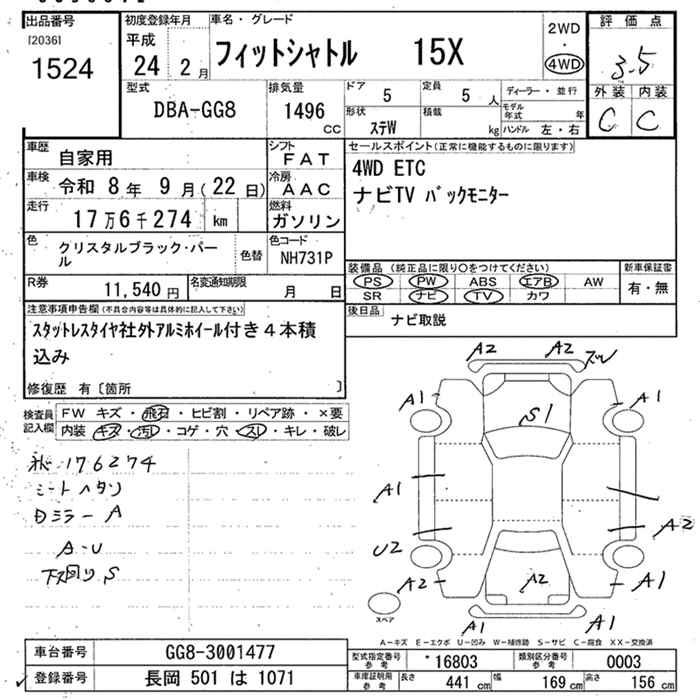 出品番号
[2036]
1524
初度登録年月
平成
24 2月
車名・グレード
フィットシャトル 15X
2WD
・
4WD
評価点
3.5
外装 内装
C C
型式
DBA-GG8
排気量
1496
CC
ドア
5
定員
5人
形状
ステW
積載
kg
ディーラー・並行
モデル年式 年
ハンドル 左・右
車歴
自家用
シフト
FAT
車検
令和 8年 9月(22日)
冷房
AAC
走行
17万6千274 km
燃料
ガソリン
色
クリスタルブラック・パール
色替
色コード
NH731P
R券
11,540円
名変通知期限
月 日
セールスポイント(正常に機能するものに限ります)
4WD ETC
ナビTV バックモニター
装備品(純正品に限り○をつけてください)
PS PW ABS エアB AW
SR ナビ TV カワ
新車保証書
有・無
後日品
ナビ取説
注意事項申告欄(不具合内容等は具体的に記入して下さい)
スタットレスタイヤ社外アルミホイール付き4本積
込み
修復歴 有〔箇所 〕
検査員記入欄
FW キズ・飛石・ヒビ割・リペア跡・×要
内装 キズ・汚レ・コゲ・穴・スレ・キレ・破レ
176274
シートヘタリ
Dミラー A
A-U
下回りS
A2 A2 ズレ
A1 A1
S1
A1 A2
U2
A2 A2 A1
A1 A1
スペア
A−キズ E−エクボ U−凹み W−補修跡 S−サビ C−腐食 XX−交換済
車台番号
GG8-3001477
登録番号
長岡 501 は 1071
型式指定番号
参考
*16803
類別区分番号
参考
0003
車庫証明用
参考
長さ 441 cm
幅 169 cm
高さ 156 cm